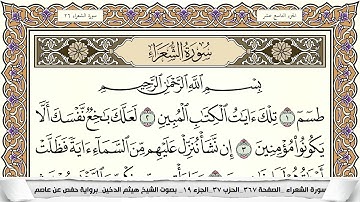 الجزء التاسع عشر
سورة الشعراء ٢٦
سُورَةُ الشُّعَرَاءِ
بِسْمِ اللَّهِ الرَّحْمَٰنِ الرَّحِيمِ
طسٓمٓ ١ تِلْكَ ءَايَٰتُ الْكِتَٰبِ الْمُبِينِ ٢ لَعَلَّكَ بَٰخِعٌ نَّفْسَكَ أَلَّا
يَكُونُوا۟ مُؤْمِنِينَ ٣ إِن نَّشَأْ نُنَزِّلْ عَلَيْهِم مِّنَ السَّمَآءِ ءَايَةً فَظَلَّتْ
سورة الشعراء _الصفحة ٣٦٧_الحزب ٣٧_الجزء ١٩ _ بصوت الشيخ هيثم الدخين_ برواية حفص عن عاصم